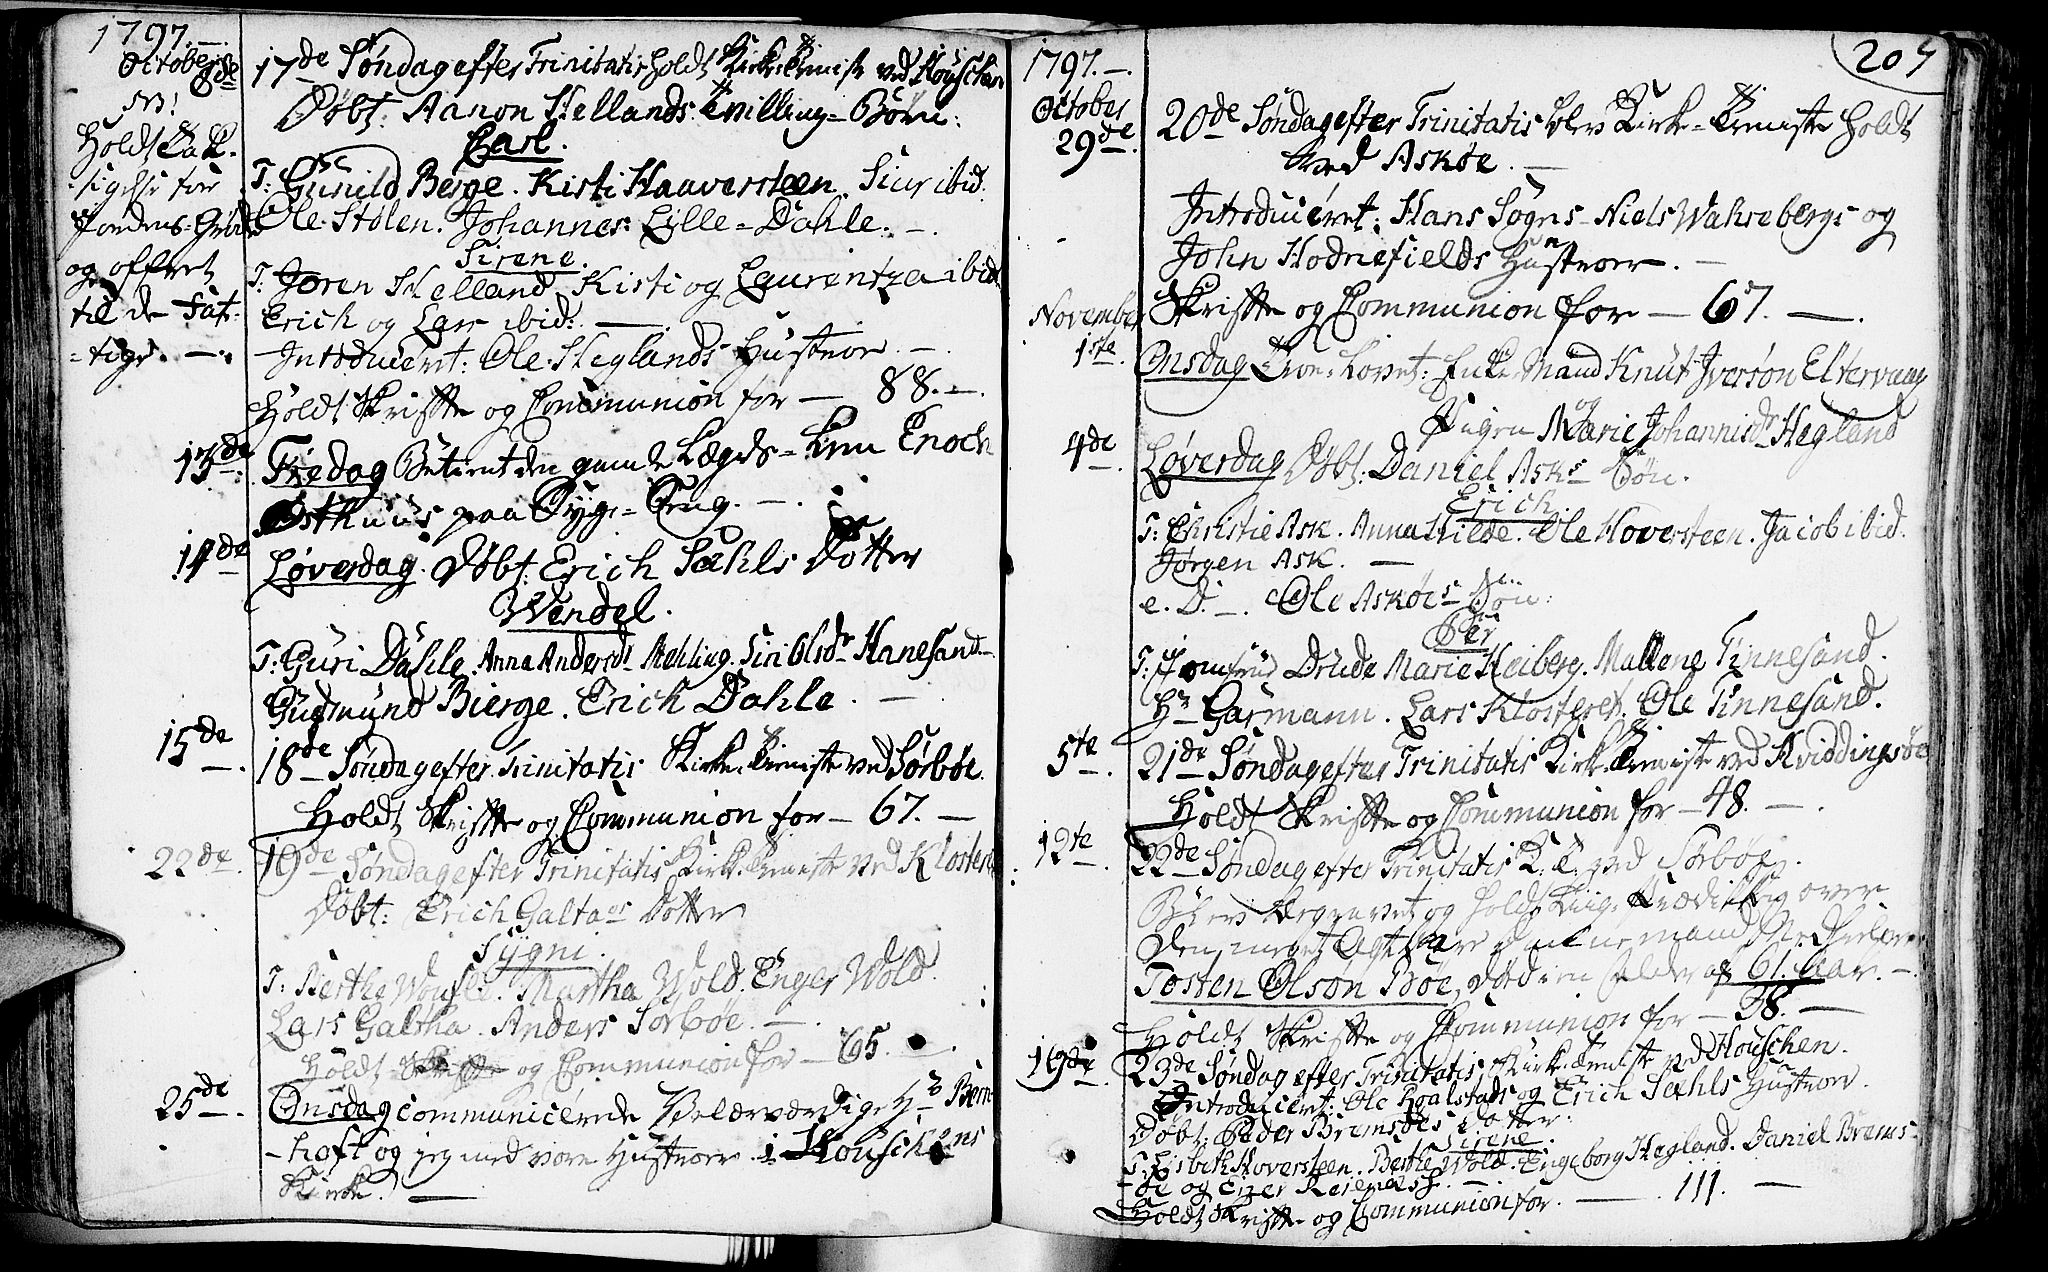 1797. —
October
8de
NB!
Holdt Tak-
sigelse for
Jordens Grøde
og offret
til de Fat-
-tige. —
17de Søndag efter Trinitatis holdt Kirke-Tieniste ved Houschen
Døbt: Aanon Hellands Tvilling-Børn:
Carl.
T: Gunild Berge. Kisti Haaversteen. Siur ibid.
Ole Stolen. Johannes Lille-Dahle. —
Sirene.
T: Joren Helland Kisti og Laurentza ibid
Erich og Lars ibid: —
Introduceret: Ole Heglands Hustroe. —
Holdt Skrifte og Communion for — 88. —
13de Fredag Betient den gamle Lægds-Lem Enoch
Østhuus paa Syge-Seng. —
14de Løverdag. Døbt: Erich Sahls Dotter
Wendel.
T: Guri Dahle. Anna Andersdr Mehling. Siri Olsdr Hanesand —
Gudmund Bierge. Erich Dahle. —
15de 18de Søndag efter Trinitatis Kirke-Tieniste ved Sørbøe.
Holdt Skrifte og Communion for — 67. —
22de. 19de Søndag efter Trinitatis Kirke-Tieniste ved Klosteret
Døbt: Erich Galtaes Dotter
Sygni.
T: Berthe . Martha Wold. Enger Wold.
Lars Galtha. Anders Sorbøe. —
Holdt Skrifte og Communion for — 65. —
25de. Onsdag communicerede Velærværdige Hr Bern-
-hoft og jeg med vore Hustroer i Houschens
Kirke. —
207
1797. —
October
29de. 20de Søndag efter Trinitatis blev Kirke-Tieniste holdt
ved Askøe. —
Introduceret: Hans Søgns Niels Wahrebergs og
John Hodnefields Hustroer. —
Skrifte og Communion for — 67. —
November
1ste. Onsdag Troe-lovet: Enke-Mand Knut Iversøn Eltervaag
og
Pigen Marie Johannisdr Hegland
4de. Løverdag Døbt: Daniel Asks Søn.
Erich
T: Christie Ask. Anna Hilde. Ole Hoversteen. Jacob ibid.
Jørgen Ask. —
e. D. —. Ole Askøes Søn:
Per
T: Jomfrue Drude Marie Heiberg. Mallene Finnesand.
Hr Garmann. Lars Klosteret. Ole Finnesand.
5te. 21de Søndag efter Trinitatis Kirke-Tieniste ved Hviddingsøe
Holdt Skrifte og Communion for — 48. —
12te. 22de Søndag efter Trinitatis K. T. ved Sørbøe.
Blev begravet og holdt Liig-Prædiken over
Den meget Agtbare Danne mand Medhielper
Tosten Olsøn Bøe, død i en Alder af 61. Aar. —
Holdt Skrifte og Communion for — 38. —
19de. 23de Søndag efter Trinitatis Kirke-Tieniste ved Houschen.
Introduceret: Ole Hoalstads og Erich Sahls Hustroer.
Døbt: Peder Bremsøes Dotter:
Sirene.
T: Lisbeth Hoversteen. Berthe Wold. Engeborg Hegland. Daniel Brems-
-øe og .
Holdt Skrifte og Communion for. — 111. —